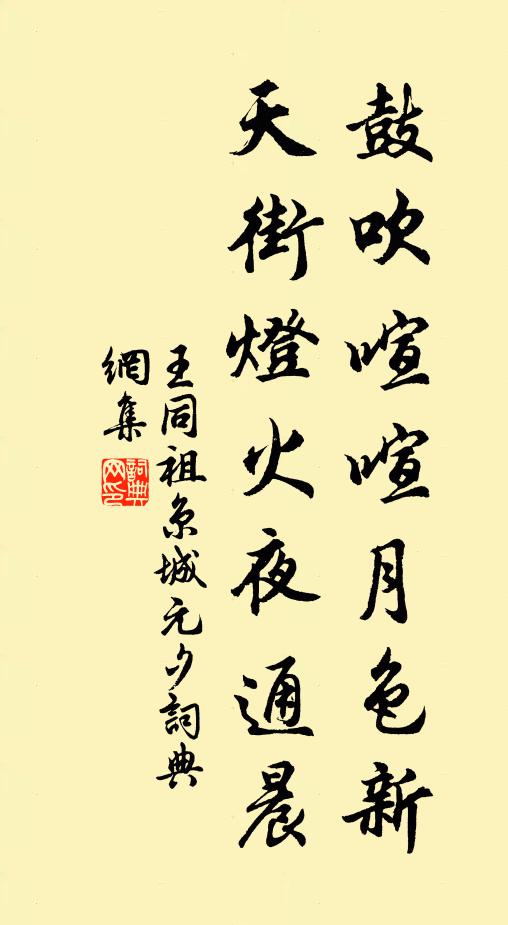 鼓吹喧喧月色新
天街燈火夜通晨
王同祖京城元夕詞典
網集
詞典網印